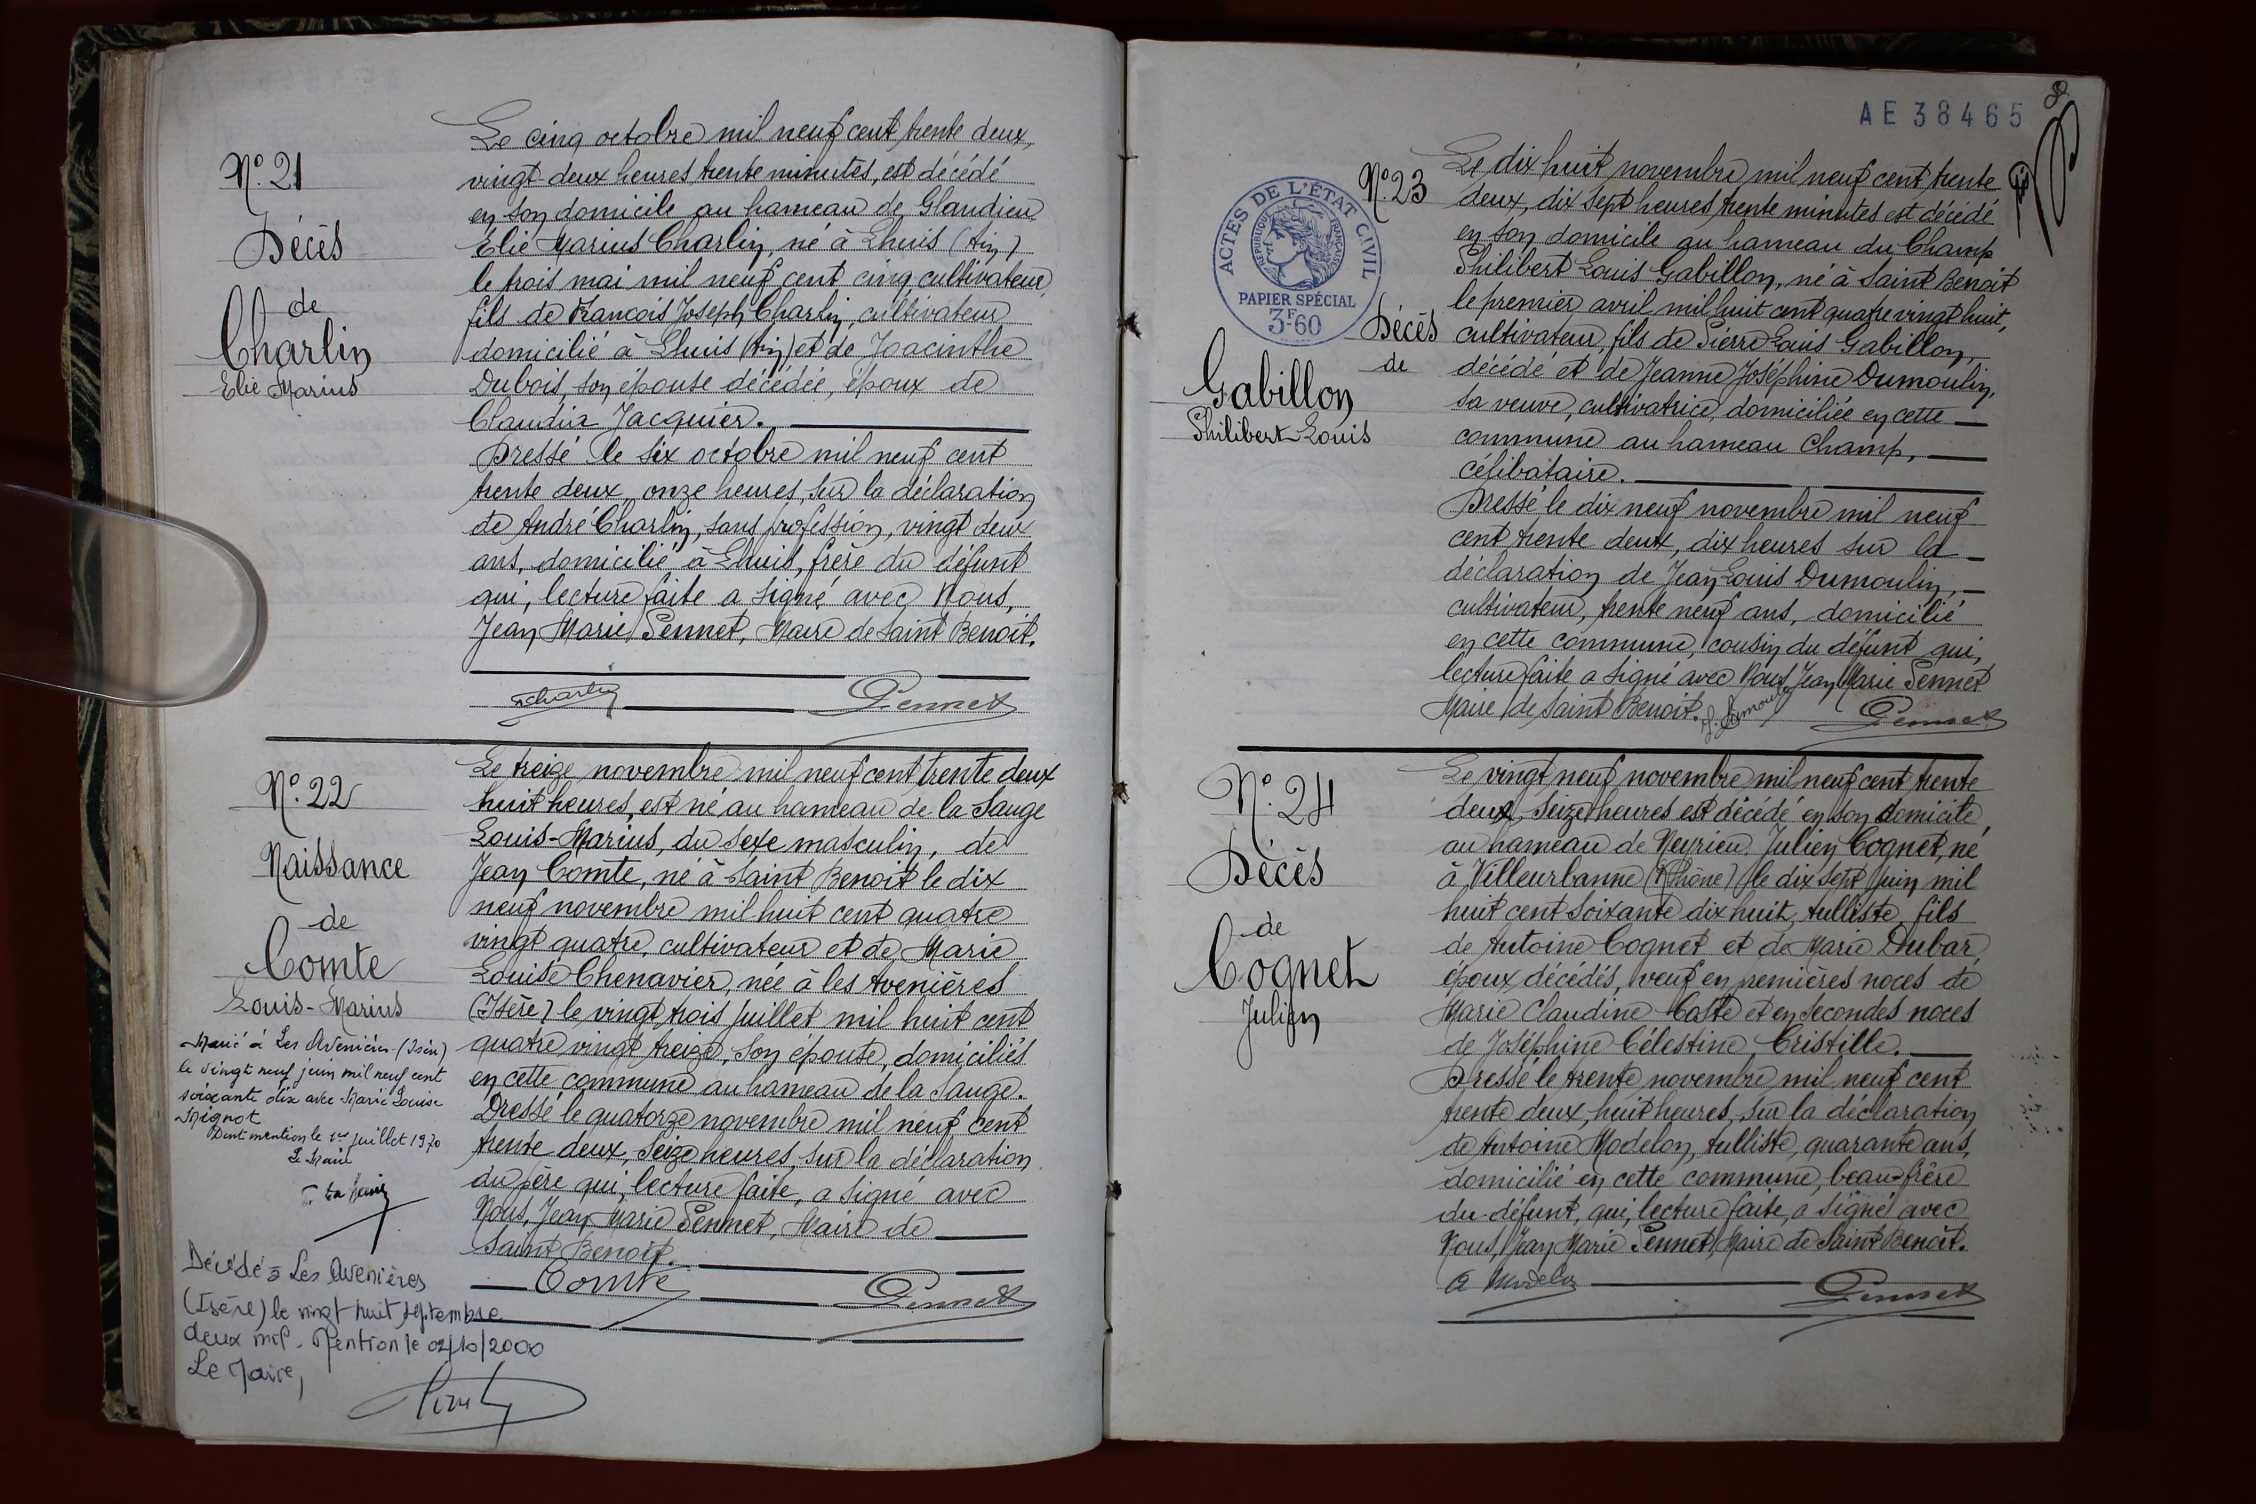 N° 21
Décès
de
Charlin
Elie Marius
Le cinq octobre mil neuf cent trente deux,
vingt deux heures trente minutes, est décédé
en son domicile au hameau de Glandieu
Elie Marius Charlin, né à Lhuis (Ain)
le trois mai mil neuf cent cinq cultivateur,
fils de François Joseph Charlin, cultivateur
domicilié à Lhuis (Ain) et de Joacinthe
Dubois, son épouse décédée, époux de
Claudia Jacquier.
Dressé le six octobre mil neuf cent
trente deux, onze heures, sur la déclaration
de André Charlin, sans profession, vingt deux
ans, domicilié à Lhuis, frère du défunt
qui, lecture faite a signé avec Nous,
Jean Marie Pennet, Maire de Saint Benoit.
Charlin Pennet
N° 22
Naissance
de
Comte
Louis-Marius
Marié à Les Avenières (Isère)
le vingt neuf juin mil neuf cent
soixante dix avec Marie Louise
Mignot
Dont mention le 1er juillet 1970
Le Maire
Décédé à Les Avenières
(Isère) le vingt huit septembre
deux mil. Mention le 02/10/2000
Le Maire,
Le treize novembre mil neuf cent trente deux
huit heures, est né au hameau de la Sauge
Louis-Marius, du sexe masculin, de
Jean Comte, né à Saint Benoit le dix
neuf novembre mil huit cent quatre
vingt quatre, cultivateur et de Marie
Louise Chenavier, née à les Avenières
(Isère) le vingt trois juillet mil huit cent
quatre vingt treize, son épouse, domiciliés
en cette commune au hameau de la Sauge.
Dressé le quatorze novembre mil neuf cent
trente deux, seize heures, sur la déclaration
du père qui, lecture faite, a signé avec
Nous, Jean Marie Pennet, Maire de
Saint Benoit.
Comte Pennet
AE 38465
ACTES DE L'ÉTAT CIVIL
RÉPUBLIQUE FRANÇAISE
PAPIER SPÉCIAL
3F60
N° 23
Décès
de
Gabillon
Philibert Louis
Le dix huit novembre mil neuf cent trente
deux, dix sept heures trente minutes est décédé
en son domicile au hameau du Champ
Philibert Louis Gabillon, né à Saint Benoit
le premier avril mil huit cent quatre vingt huit,
cultivateur, fils de Pierre Louis Gabillon,
décédé et de Jeanne Joséphine Dumoulin,
sa veuve, cultivatrice, domiciliée en cette
commune au hameau Champ,
célibataire.
Dressé le dix neuf novembre mil neuf
cent trente deux, dix heures sur la
déclaration de Jean Louis Dumoulin,
cultivateur, trente neuf ans, domicilié
en cette commune, cousin du défunt qui,
lecture faite a signé avec Nous Jean Marie Pennet
Maire de Saint Benoit. Pennet
N° 24
Décès
de
Cognet
Julien
Le vingt neuf novembre mil neuf cent trente
deux, seize heures est décédé en son domicile,
au hameau de Neyrieu, Julien Cognet, né
à Villeurbanne (Rhône) le dix sept juin mil
huit cent soixante dix huit, tulliste, fils
de Antoine Cognet et de Marie Dubar,
époux décédés, veuf en premières noces de
Marie Claudine Coste et en secondes noces
de Joséphine Célestine Cristille.
Dressé le trente novembre mil neuf cent
trente deux, huit heures, sur la déclaration
de Antoine Modelon, tulliste, quarante ans,
domicilié en cette commune, beau-frère
du défunt, qui, lecture faite, a signé avec
Nous, Jean Marie Pennet, Maire de Saint Benoit.
Pennet